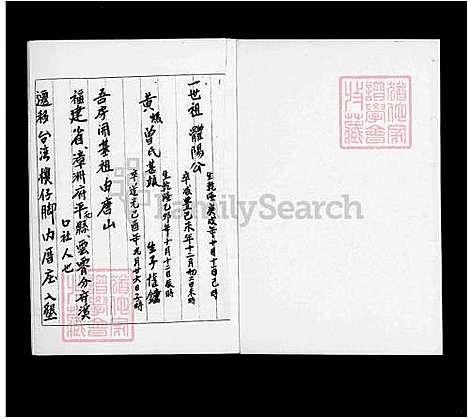 一世祖 體陽公
生乾隆庚戌年十月十一日巳時
卒咸豐己未年十二月初二日未時
黃媽曾氏甚娘 生子惟鐘
生乾隆乙卯年十月十二日辰時
卒道光己酉年元月廿六日子時
吾房開基祖由唐山
福建省漳洲府平和縣雲霄分府濱
口社人也
遷移台湾樸仔脚內厝庄入墾
FamilySearch